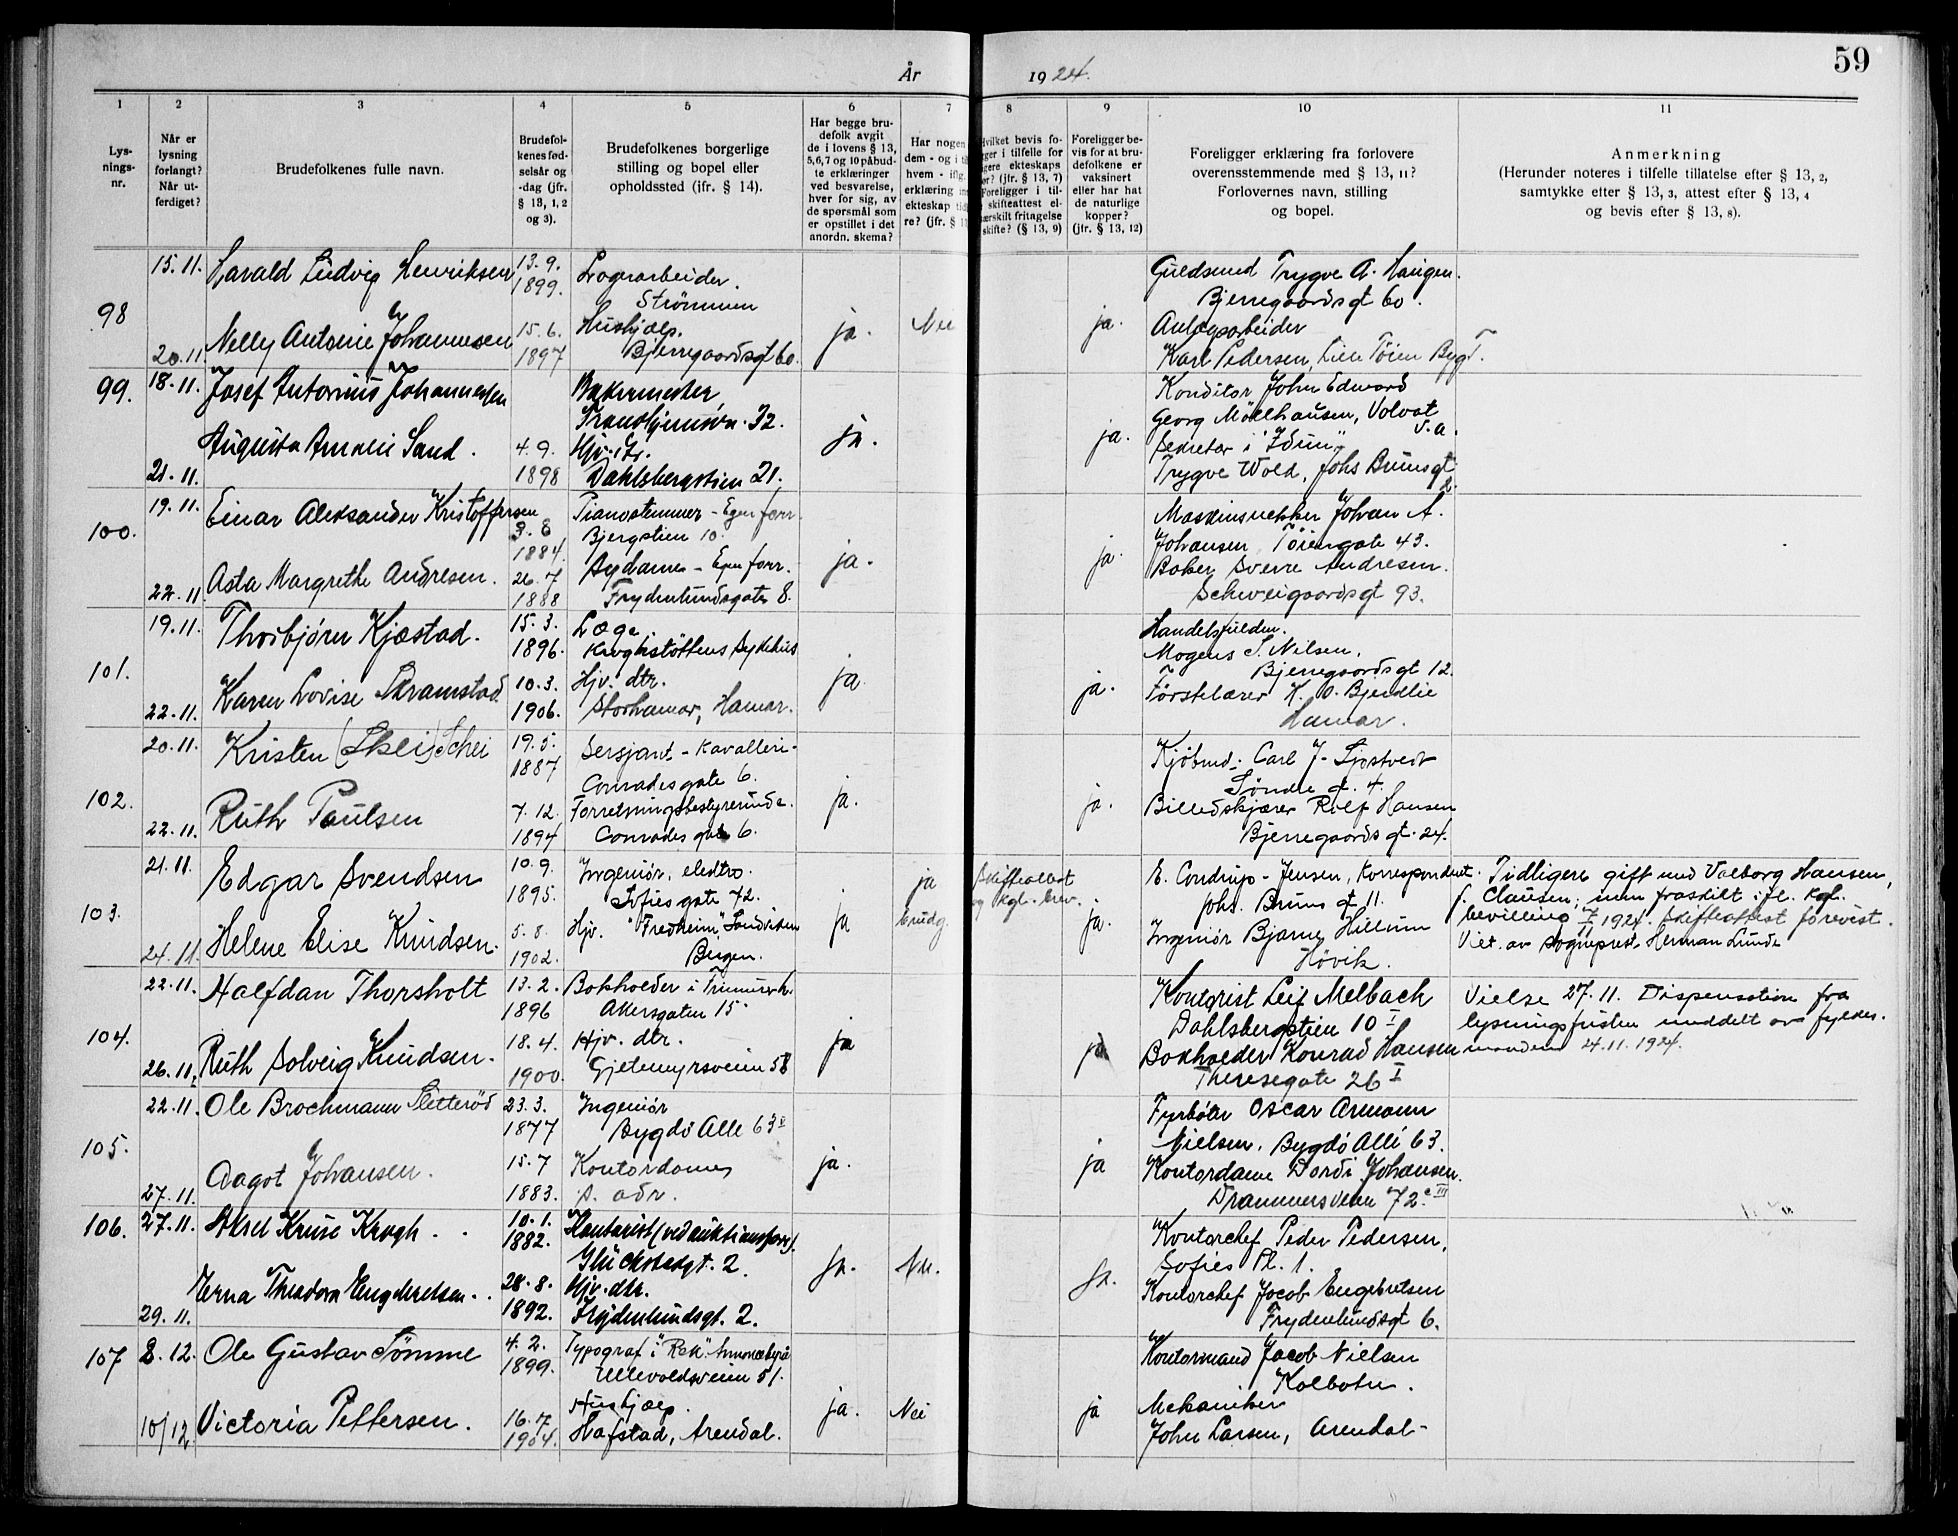 59
År 1924.
1 2 3 4 5 6 7 8 9 10 11
Lys-
nings-
nr.
Når er
lysning
forlangt?
Når ut-
ferdiget?
Brudefolkenes fulle navn.
Brudefol-
kenes fød-
selsår og
-dag (jfr.
§ 13, 1, 2
og 3).
Brudefolkenes borgerlige
stilling og bopel eller
opholdssted (jfr. § 14).
Har begge bru-
defolk avgit
de i lovens § 13,
5,6,7 og 10 påbud-
te erklæringer
ved besvarelse,
hver for sig, av
de spørsmål som
er opstillet i det
anordn. skema?
Har nogen
dem - og i
hvem - iflg.
erklæring
ekteskap
re? (jfr. §
Hvilket bevis fo-
i tilfelle for
ekteskaps
(jfr. § 13, 7)
Foreligger i til-
skifteattest el-
særskilt fritagelse
skifte? (§ 13, 9)
Foreligger be-
vis for at bru-
defolkene er
vaksinert
eller har hat
de naturlige
kopper?
(jfr. § 13, 12)
Foreligger erklæring fra forlovere
overensstemmende med § 13, 11?
Forlovernes navn, stilling
og bopel.
Anmerkning
(Herunder noteres i tilfelle tillatelse efter § 13, 2,
samtykke efter § 13, 3, attest efter § 13, 4
og bevis efter § 13, 8).
98
15.11. Harald Ludvig Henriksen 13.9. 1899. Lagerarbeider. Strömmen
20.11 Nelly Antonie Johannesen 15.6. 1897 Hushjælp. Bjerregaardsgt 60.
ja. Nei ja.
Guldsmed Trygve A. Haugen.
Bjerregaardsgt 60.
Karl Pedersen, Lille Töien
99.
18.11. Josef Antonius Johannessen Bakermester, 32.
21.11. Augusta Amalie Sand. 4.9. 1898 Dahlsbergstien 21.
ja. ja.
Konditor John Edward
Georg Möllhausen, Volvat
V.a.
Sekretær i "Idun"
Trygve Wold, Johs Brunsgt
100.
19.11. Einar Aleksander Kristoffersen 3.8 1884. Pianostemmer - Egen forr. Bjergstien 10.
22.11 Asta Margrethe Andresen. 26.7 1888 Sydame - Egen forr. Frydenlundsgate 8.
ja. ja.
Johan A.
Johansen, Töiengate 43.
Baker Sverre Andresen.
Schweigaardsgt 93.
101.
19.11. Thorbjörn Kjæstad. 15.3. 1896. Læge. Kroghstöttens Sykehus
22.11. Karen Lovise Skramstad 10.3. 1906. Hjv. dtr. Storhamar, Hamar.
ja ja.
Mogens S. Nilsen.
Bjerregaardsgt 12.
Förstelærer K. O. Bjerdlie
Hamar.
102.
20.11. Kristen (Skei) Schei 19.5. 1887 Sersjant - Kavalleri - Conradisgate 6.
22.11. Ruth Paulsen 7.12. 1894 Forretningsbestyrerinde. Conradisgate 6.
ja. ja.
Kjöbmd. Carl J.
Söndre gt. 4.
Billedskjærer Rolf Hansen
Bjerregaardsgt. 24.
103.
21.11. Edgar Svendsen 10.9. 1895. Ingeniör, elektro. Sofiesgate 72.
24.11. Helene Elise Knudsen. 5.8. 1902. Hjv. "Fredheim", Sandviken Bergen.
ja ja brudg. Skifteattest og kgl. brev. ja.
E. Condrup-Jensen, Korrespondent.
Johs. Bruns gt 11.
Ingeniör Bjarne Hillum
Hövik.
Tidligere gift med Valborg Hansen,
f. Clausen, men fraskilt ifl. kgl.
bevilling 7/11 1924. Skifteattest forevist.
Viet. av sogneprest Herman Lunde
104.
22.11. Halfdan Thorsholt 13.2. 1896 Bokholder i Akersgaten 15.
26.11. Ruth Solveig Knudsen. 18.4. 1900. Hjv. dtr. Gjetemyrsveien 58
ja ja
Kontorist Leif Melbach
Dahlsbergstien 10 I
Bokholder Konrad Hansen
Theresegate 26 I
Vielse 27.11. Dispensation fra
lysningsfristen meddelt av fylkes-
manden 24.11.1924.
105.
22.11. Ole Brochmann Sletteröd 23.3. 1877 Ingeniör Bygdö Alle 63
27.11. Dagot Johansen. 15.7 1883. Kontordame, s. adr.
ja. ja
Fyrböter Oscar Armann
Nielsen. Bygdö Allé 63.
Kontordame Dordi Johansen.
Drammensveien 72. c III
106.
27.11. Aksel Kruse Krogh. 10.1. 1882. Kontorist Glückstadgt. 2.
29.11. Erna Theodora Engebretsen. 28.8. 1892. Hjv. dtr. Frydenlundsgt. 2.
Ja. Nei. Ja.
Kontorchef Peder Pedersen,
Sofies Pl. 1.
Kontorchef Jacob Engebretsen
Frydenlundsgt 6.
107
8.12. Ole Gustav Tömme 4.2. 1899. Typograf i "Rek." Annoncebyrå Ullevoldsveien 51.
10/12 Victoria Pettersen. 16.7. 1904. Hushjælp. Hafstad, Arendal.
ja. Nei ja
Kontormand Jacob Nielsen
Kolbotn.
Mekaniker
John Larsen, Arendal-